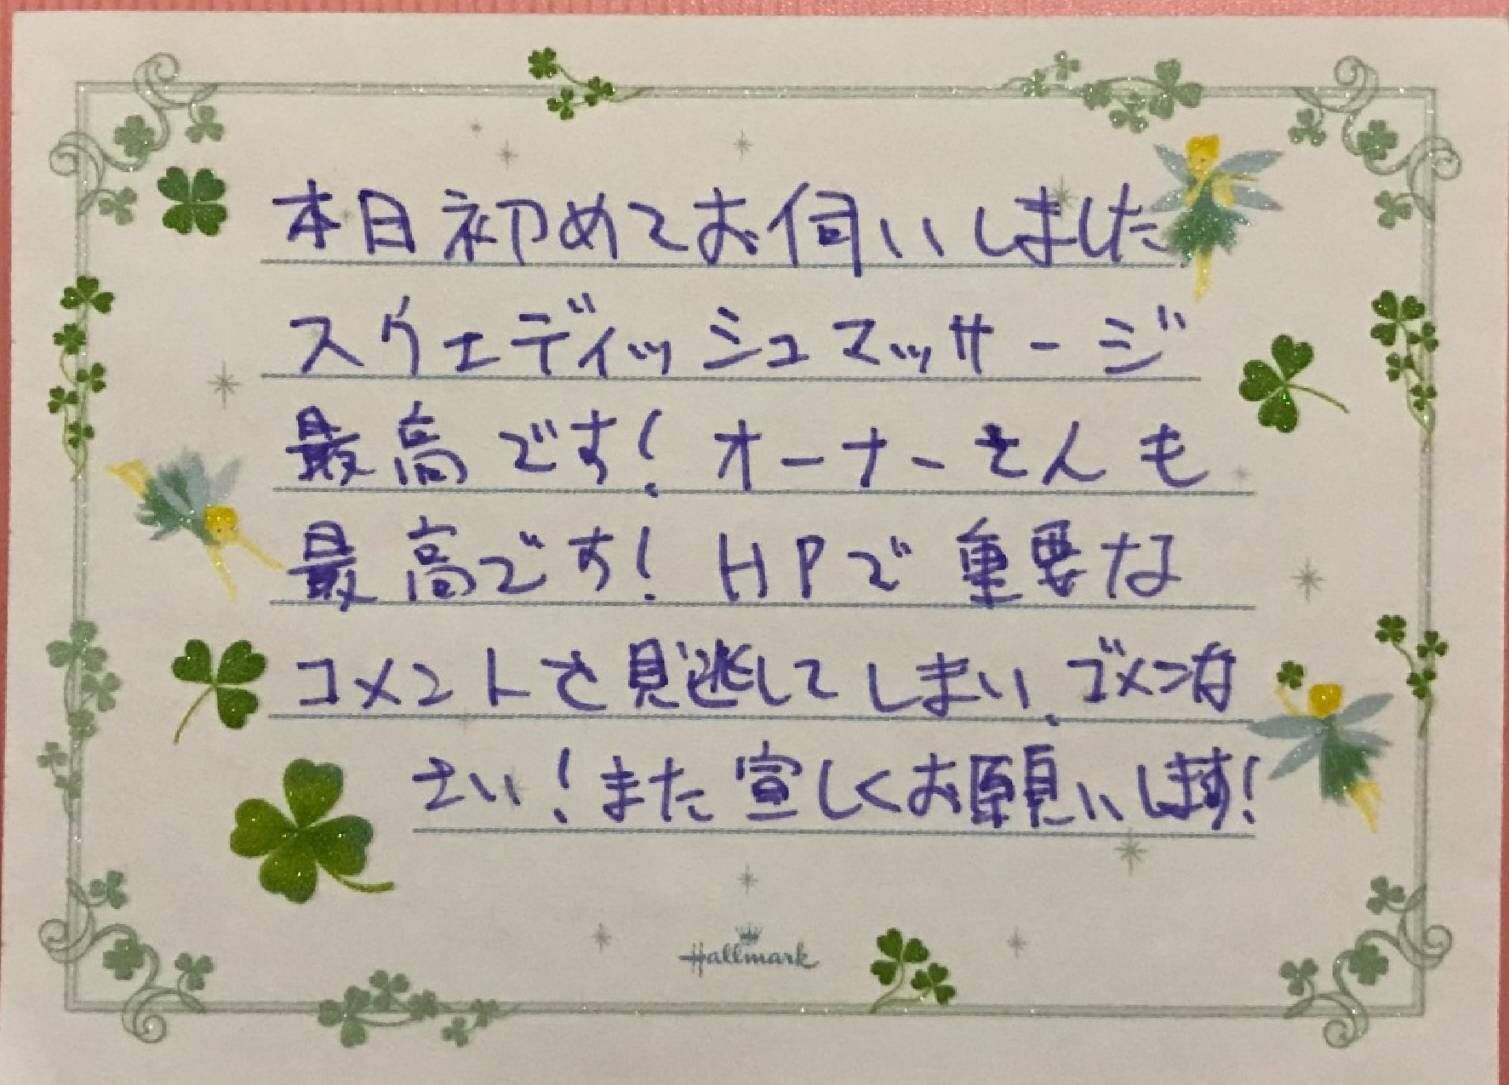 本日初めてお伺いしました
スウェディッシュマッサージ
最高です！オーナーさんも
最高です！HPで重要な
コメントを見逃してしまい、ゴメンな
さい！また宜しくお願いします！
Hallmark